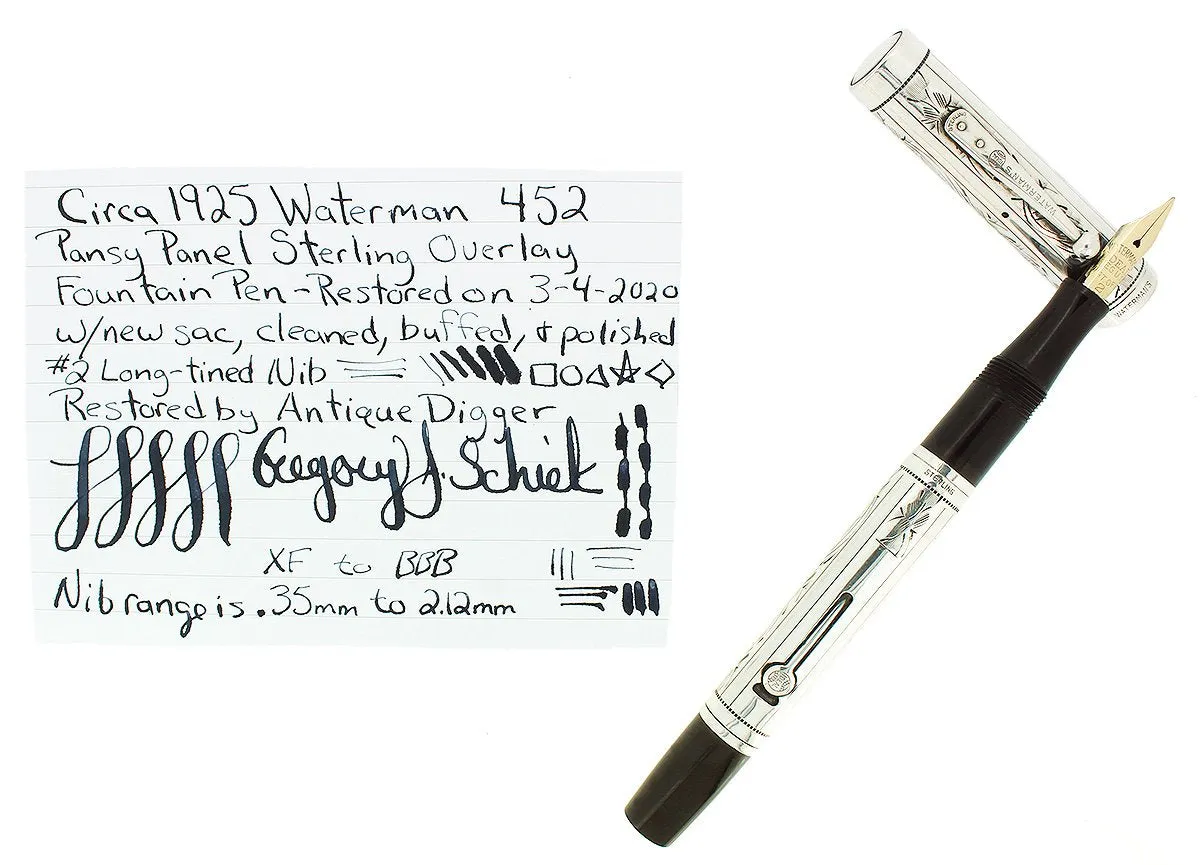 Circa 1925 Waterman 452
Pansy Panel Sterling Overlay
Fountain Pen-Restored on 3-4-2020
w/new sac, cleaned, buffed, & polished
#2 Long-tined Nib
Restored by Antique Digger
Gregory J. Schiek
XF to BBB
Nib range is .35mm to 2.12mm
STERLING
WATERMAN'S
WATERMAN'S
STERLING